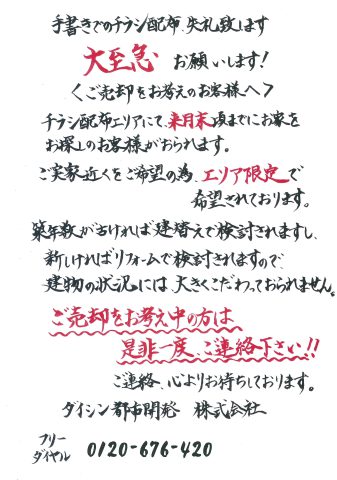 手書きでのチラシ配布、失礼致します
大至急 お願いします!
<ご売却をお考えのお客様へ>
チラシ配布エリアにて、来月末頃までにお家を
お探しのお客様がおられます。
ご実家近くをご希望の為、エリア限定で
希望されております。
築年数が古ければ建替えで検討されますし、
新しければリフォームで検討されますので、
建物の状況には、大きくこだわっておられません。
ご売却をお考え中の方は
是非一度、ご連絡下さい!!
ご連絡、心よりお待ちしております。
ダイシン都市開発 株式会社
フリー
ダイヤル 0120-676-420